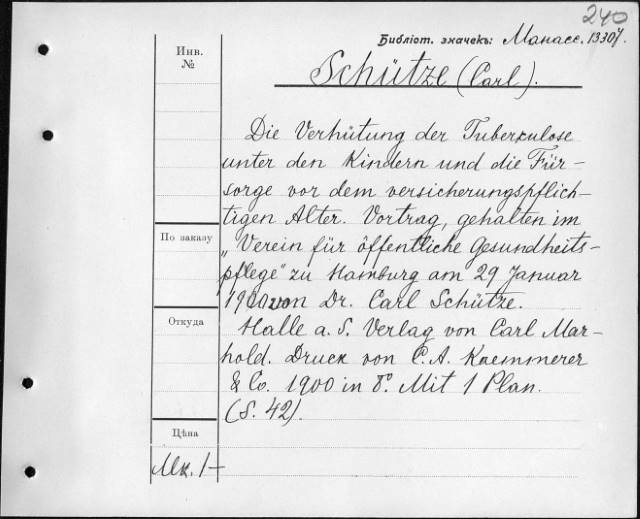 240
Библіот. значекъ: Манасс. 13307.
Инв.
№
Schütze (Carl).
Die Verhütung der Tuberkulose
unter den Kindern und die Für-
sorge vor dem versicherungspflich-
tigen Alter. Vortrag, gehalten im
По заказу
„Verein für öffentliche Gesundheits-
pflege" zu Hamburg am 29 Januar
1900 von Dr. Carl Schütze.
Откуда
Halle a. S. Verlag von Carl Mar-
hold. Druck von C. A. Kaemmerer
& Co. 1900 in 8º. Mit 1 Plan.
(S. 42).
Цѣна
Мк. 1-